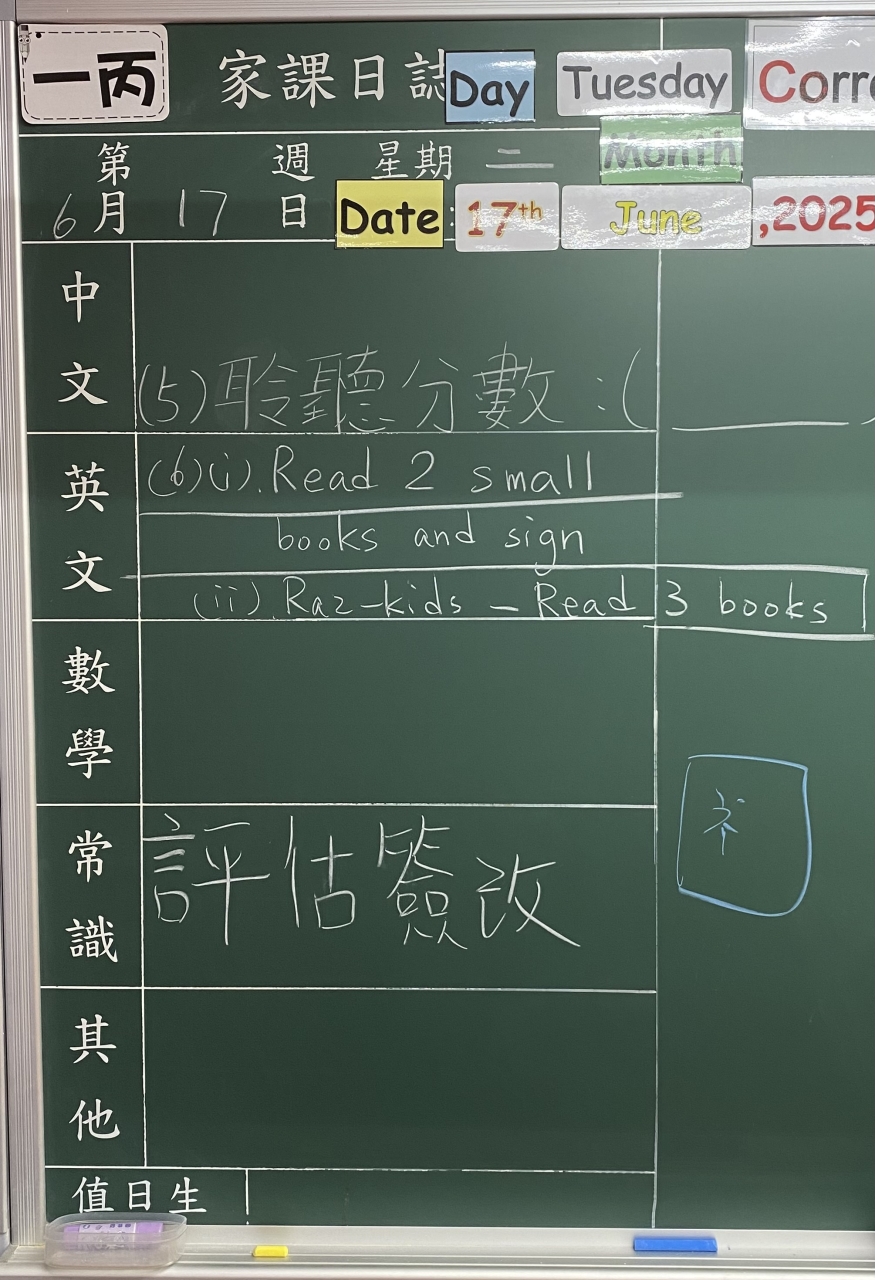 一丙 家課日誌 Day Tuesday Corre
第 週 星期 二 Month
6月 17 日 Date: 17th June ,2025
中文
(5)聆聽分數:( ______ )
英文
(6)(i). Read 2 small
books and sign
(ii). Raz-kids – Read 3 books
數學
常識
評估簽改
其他
值日生